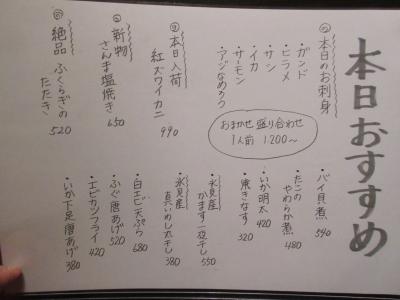 本日おすすめ
①本日のお刺身
・ガンド
・ヒラメ
・サシ
・イカ
・サーモン
・アジなめろう
おまかせ盛り合わせ
1人前 1200~
本日入荷
紅ズワイカニ
990
新物
さんま塩焼き
650
絶品 ふくらぎの
たたき
520
・バイ貝煮
540
・たこの
やわらか煮
480
・いか明太
420
・焼きなす
320
・氷見産
かます一夜干し
550
・氷見産
真いわし丸干し
380
・白エビ天ぷら
680
・ふぐ唐あげ
520
・エビカツフライ
420
・いか下足唐あげ
380